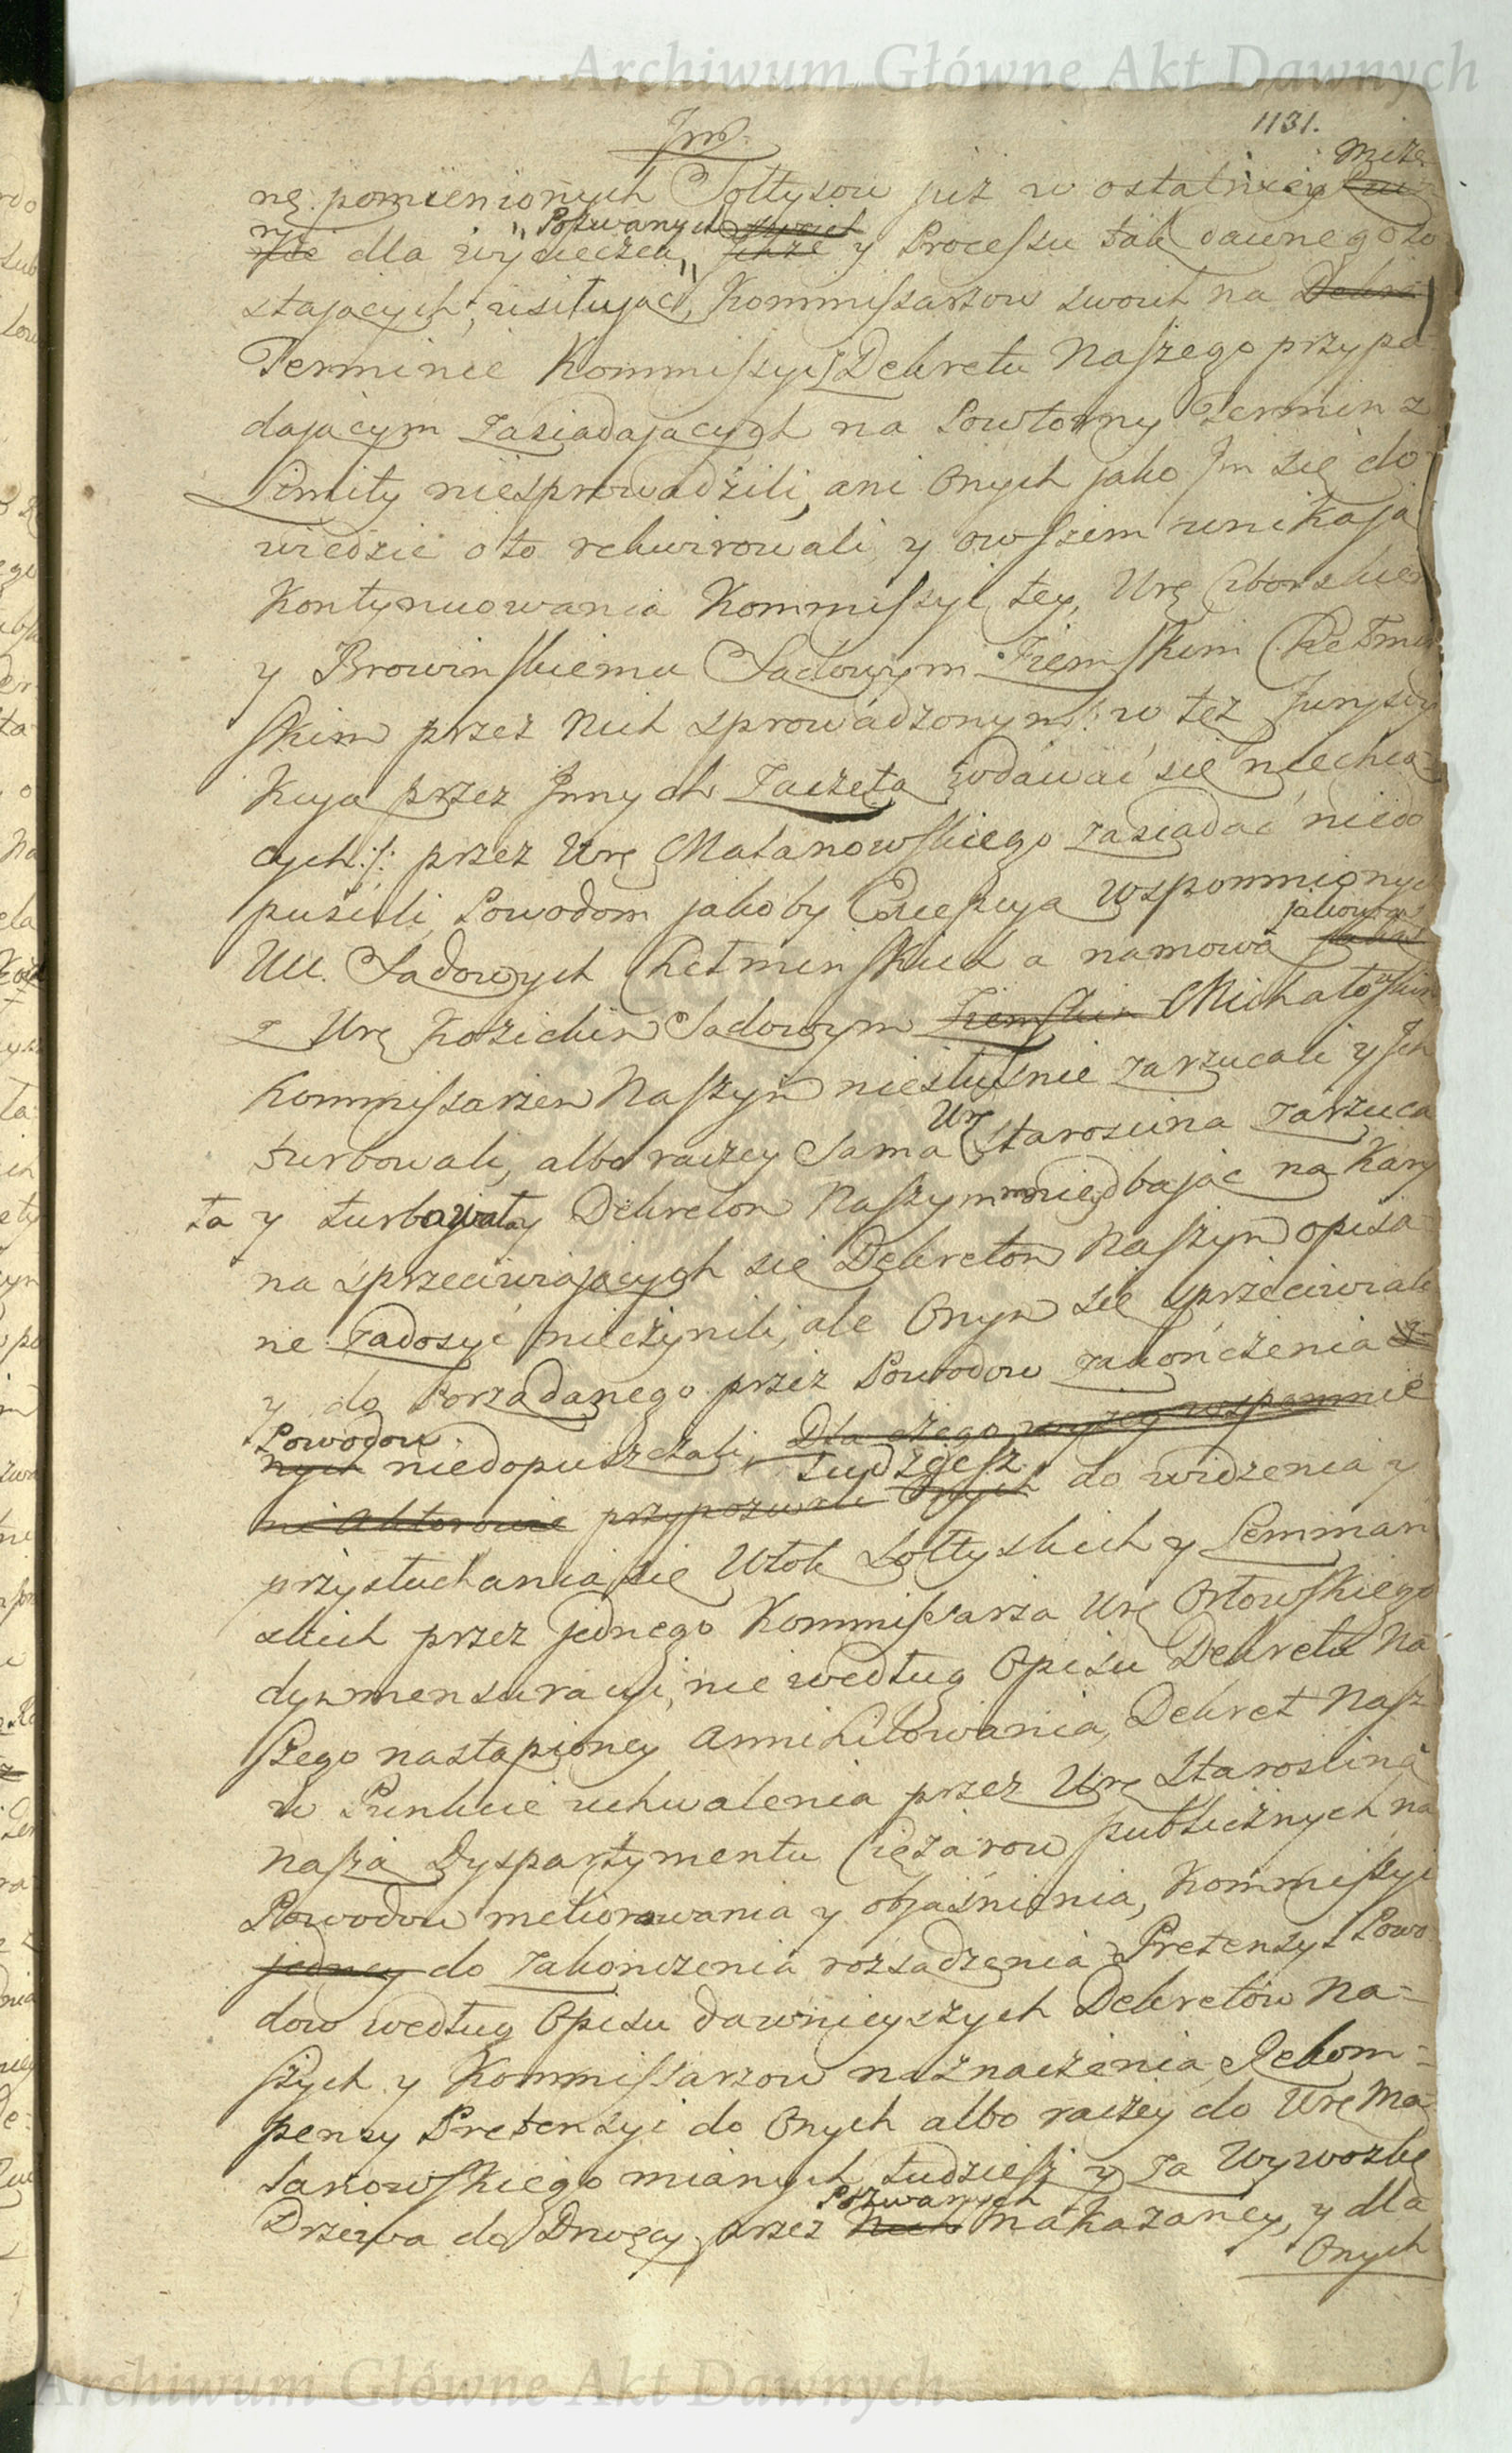 Archiwum Główne Akt Dawnych
1131.
Jm
mize
nę pomienionych Sołtysow już w ostatniey
ry Pozwanych
dla wycieczen y Processu tak dawnego zo
staiących, usiłuiąc Kommissarzow swoich na Dekre
Terminie Kommissyi z Dekretu Naszego przypa
dającym zasiadających na Powtorny Termin z
Limity niesprowadzili, ani Onych jako Im się do
wiedzie o to rekwirowali, y owszem unikają
Kontynuowania Kommissyi tey, Urę Cborskie
y Browinskiemu Sądowym Ziemskim Chełmin
skim przez Nich sprowadzonym w tęż Jurysdy
kcyą przez Innych Zaczętą wdawać się niechcą
cych :/: przez Urę Matanowskiego zasiadać niedo
puścili, Powodom jakoby Excepcyą wspomnionych
jakowąś
UU. Sądowych Chełminskich a namową
z Urę Kozickim Sądowym Ziemskim Michałoskim
Kommissarzem Naszym niesłusznie zarzucali y Ich
Urę
turbowali, albo raczey Sama Starościna zarzuca
ła y turbowała, y Dekretom Naszym niedbając na Kary
na sprzeciwiających się Dekretom Naszym opisa
ne zadosyć nieczynili, ale Onym się sprzeciwiali
y do Porządanego przez Powodow zakończenia
Powodow
nych niedopuszczali, Dla czego wyżey wspomnie
tudziesz
ni Aktorowie przypozwali Onych do widzenia y
przysłuchania się Włok Sołtyskich y Lemman
skich przez jednego Kommissarza Urę Orłowskiego
dymensuracyi, nie według Opisu Dekretu Na
szego nastąpioney Annihilowania, Dekret Nasz
w Punkcie uchwalenia przez Urę Starościnę
naszą Dyspartymentu Ciężarow publicznych na
Powodow meliorowania y objaśnienia, Kommissyi
jedney do zakończenia rozsądzenia Pretensyi Powo
dow według Opisu dawnieyszych Dekretów Na=
szych y Kommissarzow naznaczenia, Rekom=
pensy Pretensyi do Onych albo raczey do Urę Ma
tanowskiego mianych tudziesz y za Wywozkę
Pozwanych
Drzewa do Drwęcy przez Nich nakazaney, y dla
Onych
Archiwum Główne Akt Dawnych